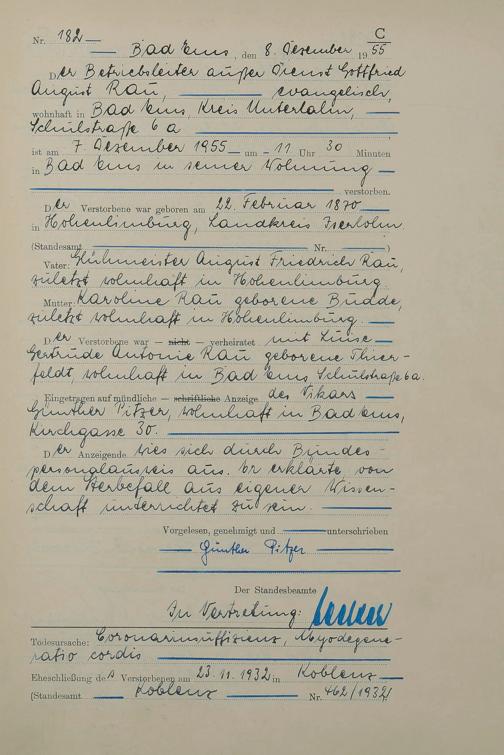 C
Nr. 182
Bad Ems, den 8. Dezember 1955
Der Betriebsleiter außer Dienst Gottfried
August Rau, evangelisch,
wohnhaft in Bad Ems, Kreis Unterlahn,
Schulstraße 6 a
ist am 7. Dezember 1955 um 11 Uhr 30 Minuten
in Bad Ems in seiner Wohnung
verstorben.
Der Verstorbene war geboren am 22. Februar 1870
in Hohenlimburg, Landkreis Iserlohn
(Standesamt Nr. )
Vater: Glühmeister August Friedrich Rau,
zuletzt wohnhaft in Hohenlimburg
Mutter: Karoline Rau geborene Budde,
zuletzt wohnhaft in Hohenlimburg.
Der Verstorbene war — nicht — verheiratet mit Luise
Gertrude Antonie Rau geborene Thier-
feldt, wohnhaft in Bad Ems Schulstraße 6a.
Eingetragen auf mündliche — schriftliche Anzeige des Vikars
Günther Pitzer, wohnhaft in Bad Ems,
Kirchgasse 30.
Der Anzeigende wies sich durch Bundes-
personalausweis aus. Er erklärte von
dem Sterbefall aus eigener Wissen-
schaft unterrichtet zu sein.
Vorgelesen, genehmigt und unterschrieben
Günther Pitzer
Der Standesbeamte
In Vertretung:
Todesursache: Coronarinsuffizienz, Myodegene-
ratio cordis
Eheschließung des Verstorbenen am 23.11.1932 in Koblenz
(Standesamt Koblenz Nr. 462/1932)